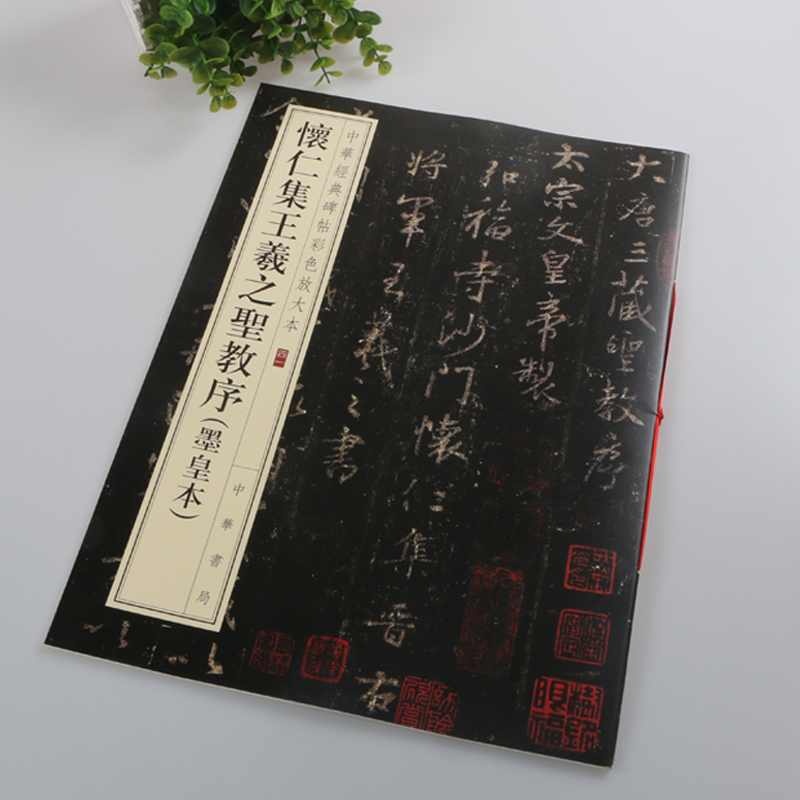 中華經典碑帖彩色放大本
懷仁集王羲之聖教序（墨皇本）
中華書局
大唐三藏聖教序
太宗文皇帝製
弘福寺沙門懷仁集晉右
將軍王羲之書